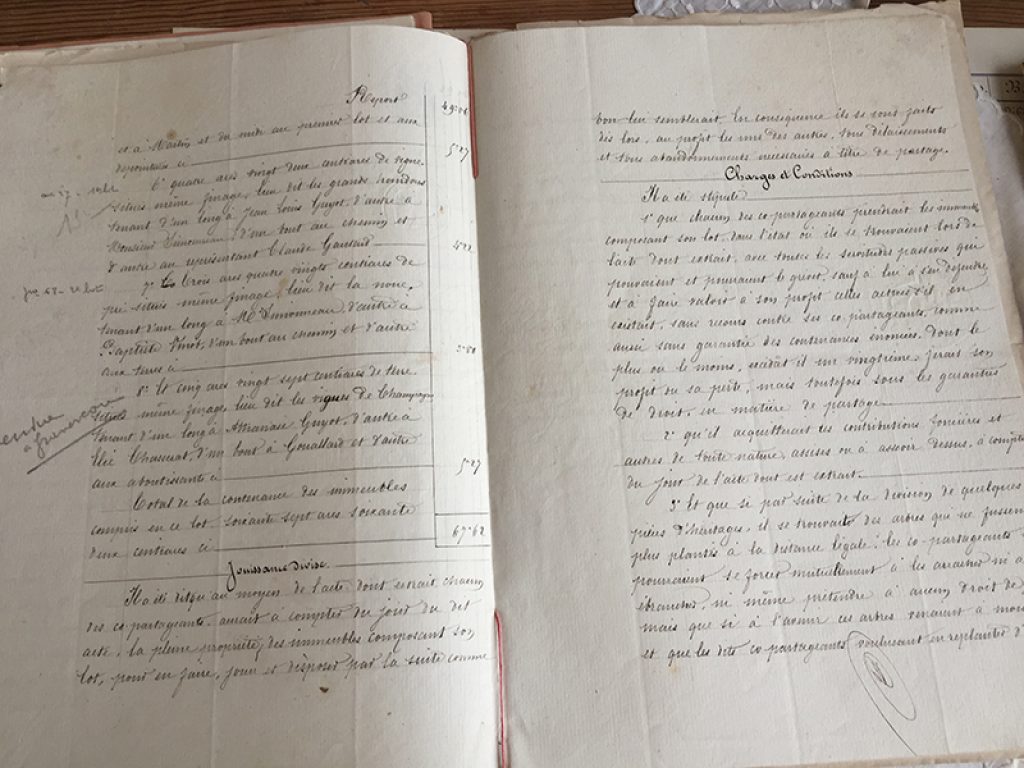 Report
49.06
et à Martin et du midi au premier lot et aux
ci 5.27
6° quatre ares vingt deux centiares de vigne
situés même finage, lieu dit les grands
tenant d'un long à Jean Louis Guyot, d'autre à
Monsieur Simonneau, d'un bout au chemin et
d'autre au représentant Claude 4.22
7° Et Trois ares quatre vingts centiares de
pré situés même finage, lieu dit la noue,
tenant d'un long à Mr Simonneau, d'autre à
Baptiste d'un bout au chemin et d'autre
aux terres à 3.80
8° Et cinq ares vingt sept centiares de terre
situés même finage, lieu dit les vignes de Champagne
tenant d'un long à Athanase Guyot, d'autre à
d'un bout à Gouallard et d'autre
aux aboutissants à 5.27
Total de la contenance des immeubles
compris en ce lot soixante sept ares soixante
deux centiares ci 67.62
Jouissance divise
Il a été dit qu'au moyen de l'acte dont extrait, chacun
des co-partageants aurait à compter du jour du dit
acte, la pleine propriété des immeubles composant son
lot, pour en faire, jouir et disposer par la suite comme
bon leur semblerait, en conséquence ils se sont faits
dès lors, au profit les uns des autres, tous délaissements
et tous abandonnements nécessaires à titre de partage.
Charges et Conditions
Il a été stipulé
1° que chacun des co-partageants prendrait les immeubles
composant son lot, dans l'état où ils se trouvaient lors de
l'acte dont extrait, avec toutes les servitudes passives qui
pouvaient et pourraient le grever, sauf à lui à s'en défendre
et à faire valoir à son profit celles actives s'il en
existait, sans recours contre ses co-partageants, comme
aussi sans garantie des contenances énoncées, dont le
plus ou le moins, excédât-il un vingtième, ferait son
profit ou sa perte, mais toutefois sous les garanties
de droit, en matière de partage
2° qu'il acquitterait les contributions foncières et
autres de toute nature, assises ou à asseoir dessus, à compter
du jour de l'acte dont est extrait.
3° Et que si par suite de la division de quelques
pièces d'héritages, il se trouvait des arbres qui ne fussent
plus plantés à la distance légale, les co-partageants
pourraient se forcer mutuellement à les arracher ni à
ébrancher, ni même prétendre à aucun droit de
mais que si à l'avenir ces arbres venaient à
et que les dits co-partageants voulussent en replanter